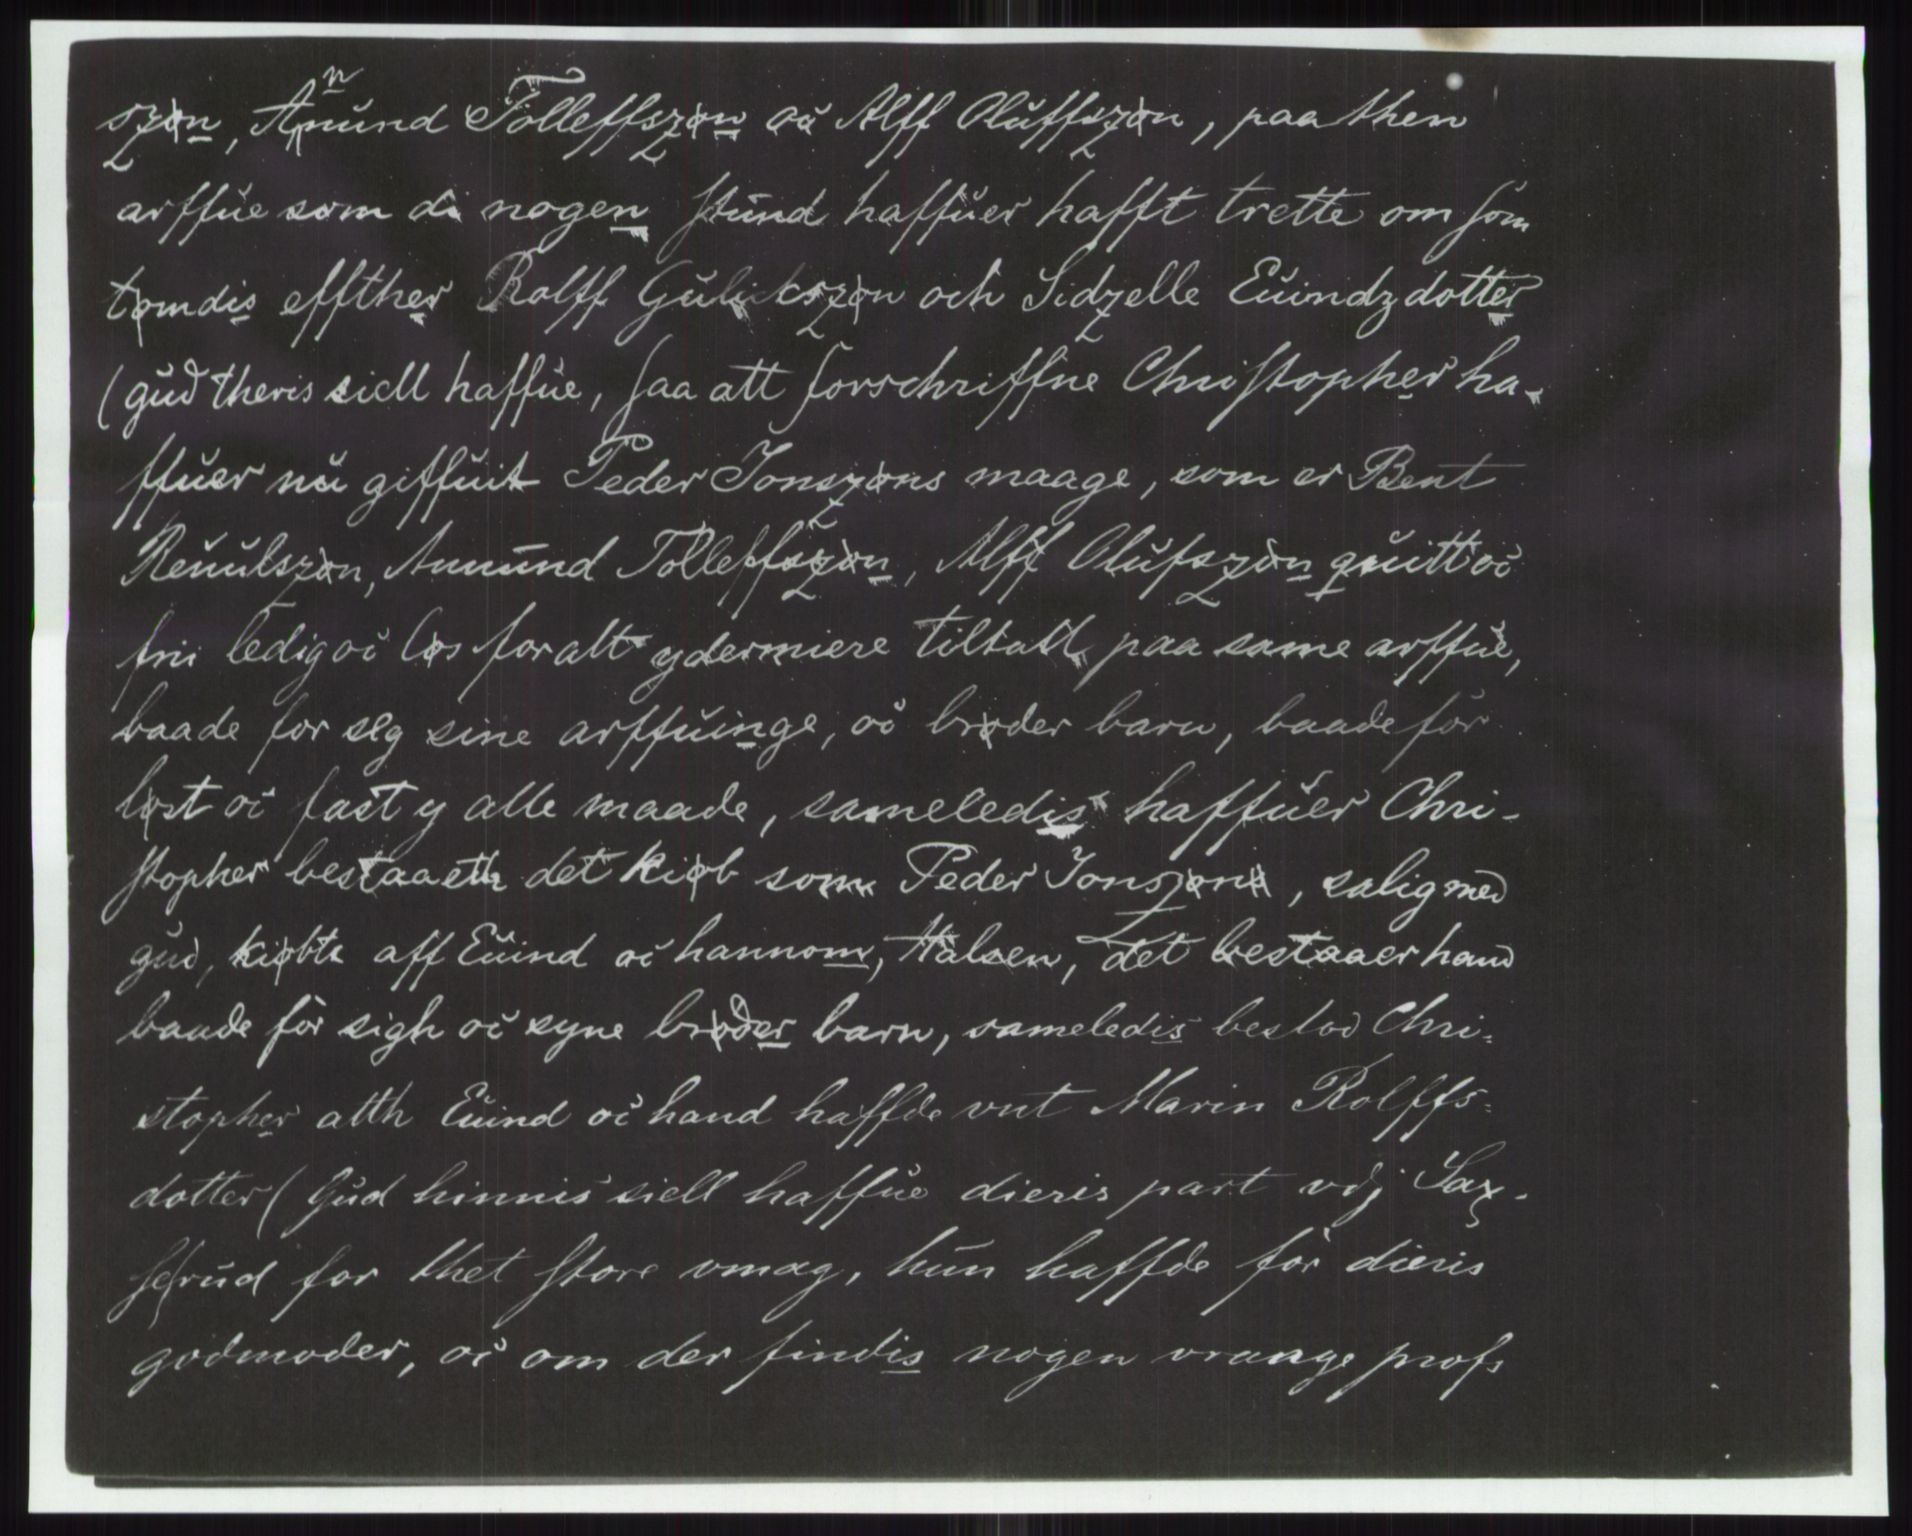 szøn, Anund Tolleffszøn oc Alff Oluffszøn, paa then
arffue som di nogen stund haffuer hafft trette om som
tømdis effther Rolff Gulickszøn och Sidzelle Euindzdotter
(gud theris siell haffue, saa att forschriffne Christopher ha-
ffuer nu giffuit Peder Jonszøns maage, som er Bent
Reuulszøn, Amund Tolleffszøn, Alff Olufszøn quitt oc
frii ledig oc løs for alt ydermiere tiltall paa same arffue,
baade for seg sine arffuinge, oc brøder barn, baade for
løst oc fast y alle maade, sameledis haffuer Chri-
stopher bestaaeth det kiøb som Peder Jonszøn, salig med
gud, kiøbte aff Euind oc hannom, Halsen, det bestaaer hand
baade for sigh oc syne brøder barn, sameledis bestod Chri-
stopher atth Euind oc hand haffde vnt Marin Rolffs-
dotter (Gud hinnis siell haffue dieris part vdj Sax-
segrud for thet store vmag, hun haffde for dieris
godmoder, oc om der findis nogen vrange profs